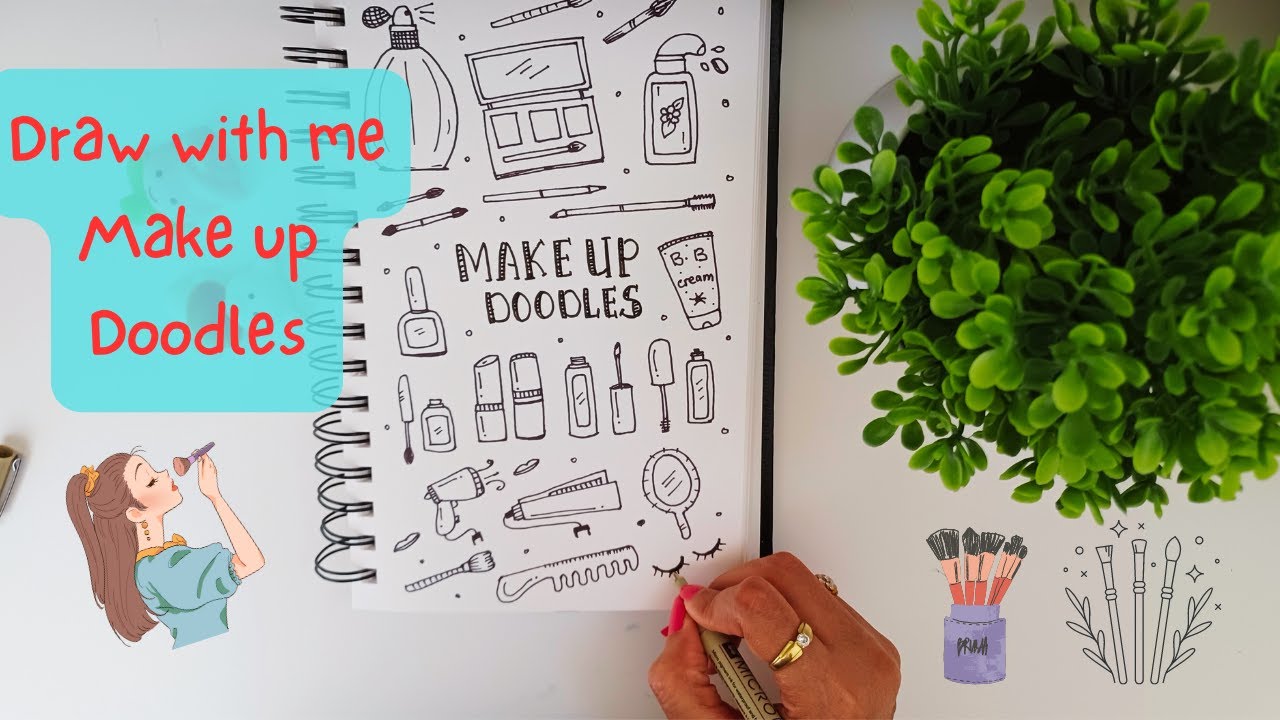 Draw with me
Make up
Doodles
MAKE UP
DOODLES
B.B
cream
MICRO